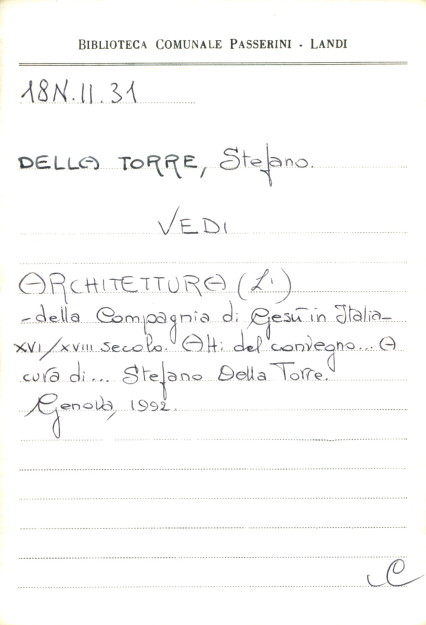 BIBLIOTECA COMUNALE PASSERINI - LANDI
18N.II.31
DELLA TORRE, Stefano.
VEDI
ARCHITETTURA (L')
-della Compagnia di Gesù in Italia-
XVI/XVIII secolo. Atti del convegno... A
cura di... Stefano Della Torre.
Genova, 1992.
C